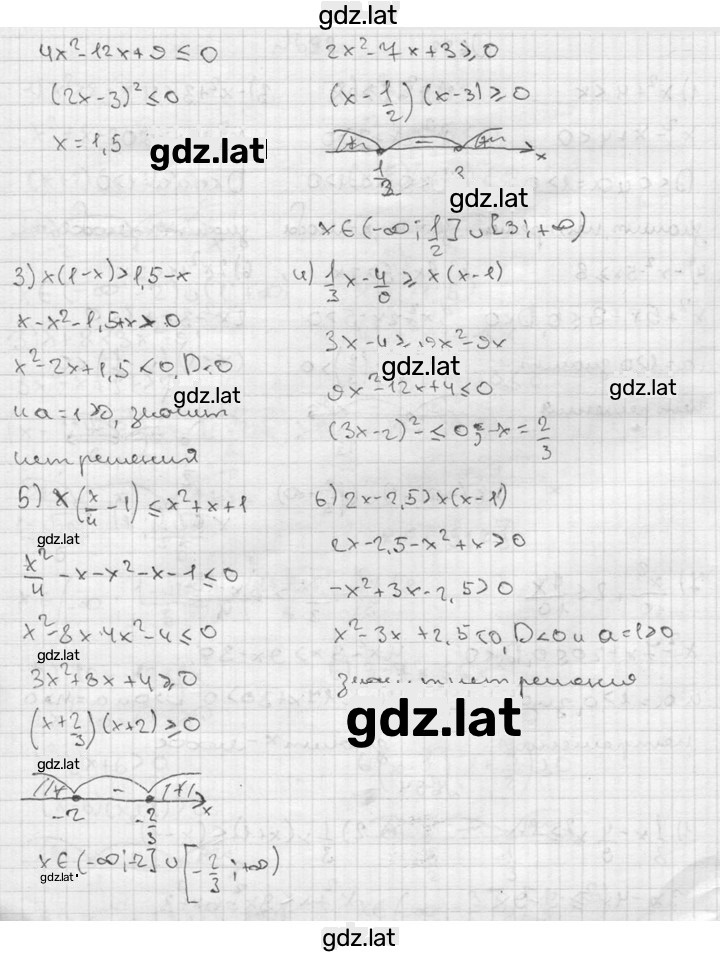 gdz.lat
4x²-12x+9≤0
(2x-3)²≤0
x=1,5
gdz.lat
2x²-7x+3≥0
(x-1/2)(x-3)≥0
+ - +
x
gdz.lat
x∈(-∞;1/2]∪[3;+∞)
3) x(1-x)>1,5-x
x-x²-1,5+x>0
x²-2x+1,5<0, D<0
gdz.lat
и a=1>0, значит
нет решения
4) 1/3x-4/9≥x(x-1)
3x-4≥9x²-9x
gdz.lat
9x²-12x+4≤0
gdz.lat
(3x-2)²≤0; x=2/3
5) x(x/4-1)≤x²+x+1
gdz.lat
x²/4-x-x²-x-1≤0
x²-8x-4x²-4≤0
gdz.lat
3x²+8x+4≥0
(x+2/3)(x+2)≥0
gdz.lat
+ - +
-2 -2/3 x
x∈(-∞;-2]∪[-2/3;+∞)
gdz.lat
6) 2x-2,5>x(x-1)
2x-2,5-x²+x>0
-x²+3x-2,5>0
x²-3x+2,5<0, D<0 и a=1>0
нет решения
gdz.lat
gdz.lat